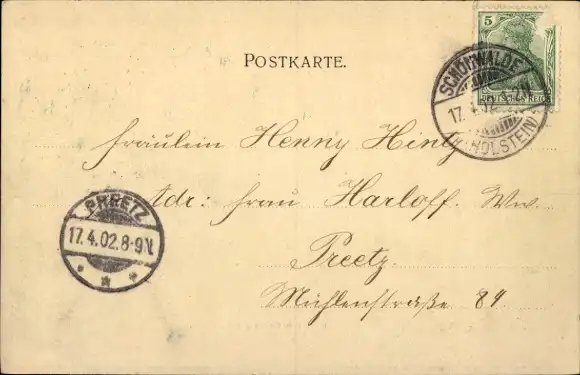 5
DEUTSCHES REICH
SCHÖNWALDE
17.4.
(HOLSTEIN)
POSTKARTE.
Fräulein Henny Hintz
Adr: Frau Harloff. Ww.
Preetz.
Mühlenstraße 84
PREETZ
17.4.02.8-9V.